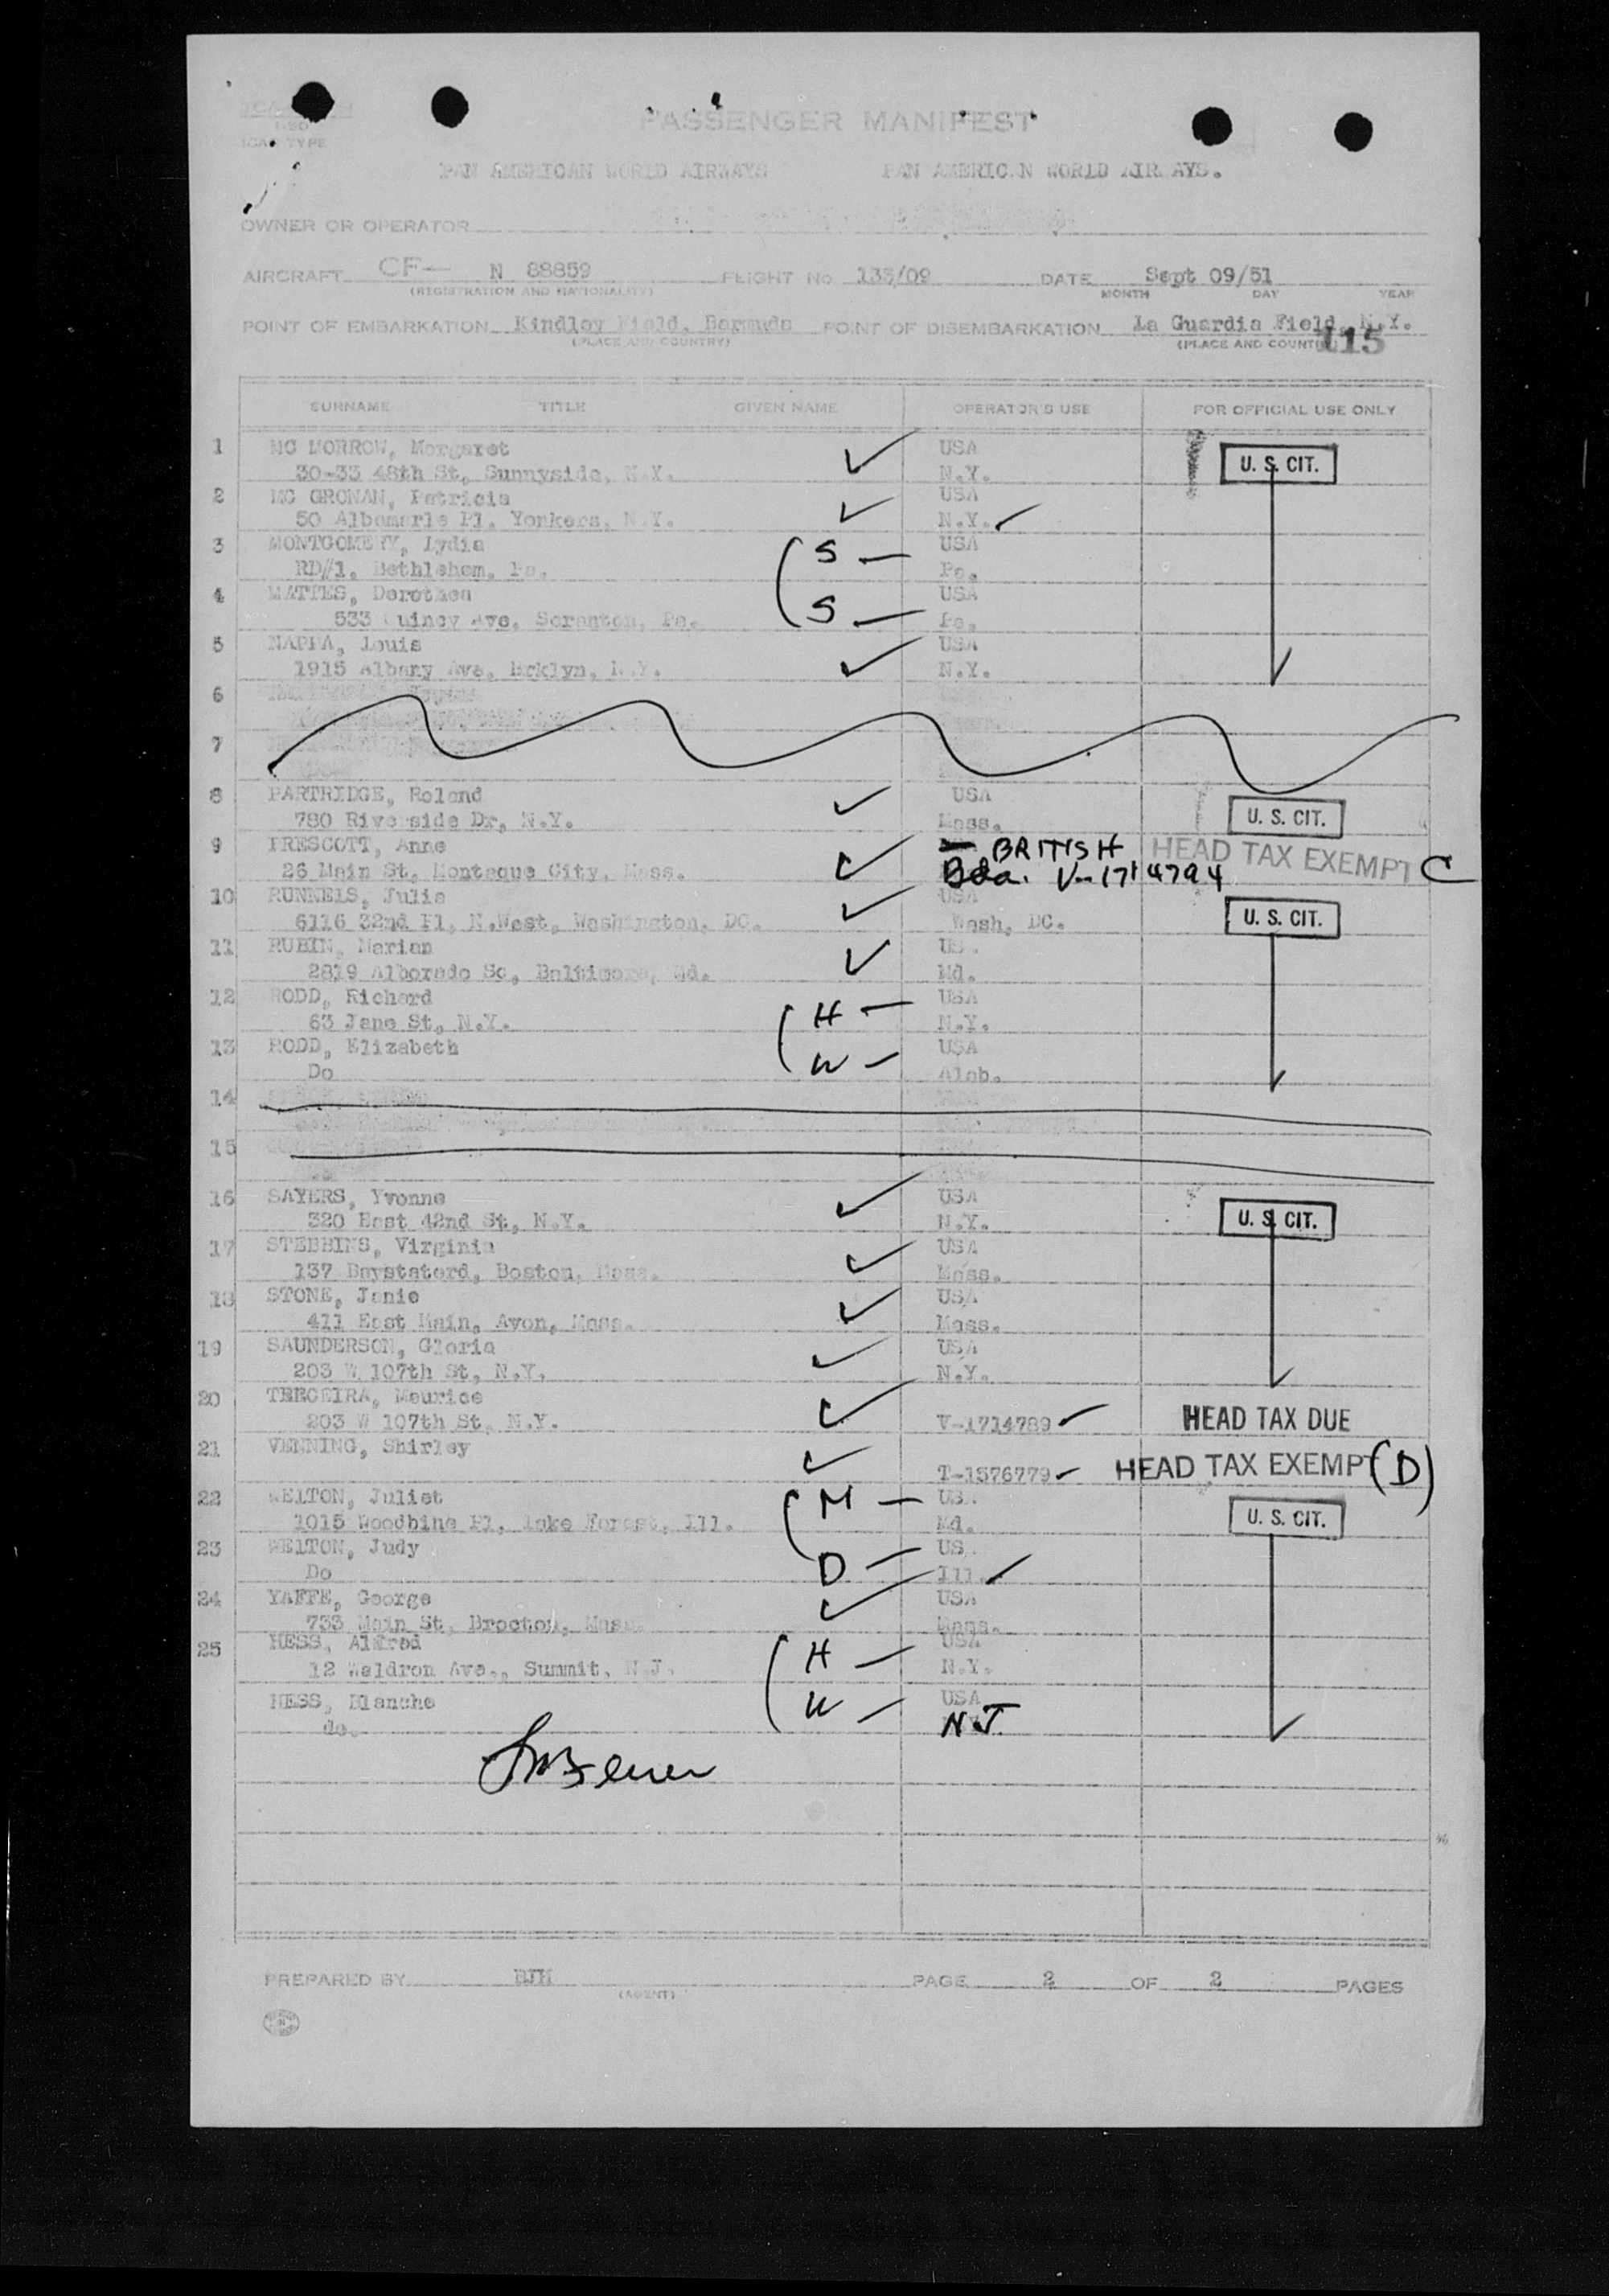 ICAO TYPE
PASSENGER MANIFEST
PAN AMERICAN WORLD AIRWAYS PAN AMERIC N WORLD AIR AYS.
OWNER OR OPERATOR
AIRCRAFT CF— N 88859 FLIGHT No 133/09 DATE Sept 09/51
(REGISTRATION AND NATIONALITY) MONTH DAY YEAR
POINT OF EMBARKATION Kindley Field, Bermuda POINT OF DISEMBARKATION La Guardia Field, N.Y.
(PLACE AND COUNTRY) (PLACE AND COUNTRY) 115
SURNAME TITLE GIVEN NAME OPERATOR'S USE FOR OFFICIAL USE ONLY
1 MC MORROW, Margaret ✓ USA U. S. CIT.
30-33 48th St, Sunnyside, N.Y. N.Y.
2 MC GRONAN, Patricia ✓ USA
50 Albemarle Pl, Yonkers, N.Y. N.Y. ✓
3 MONTGOMERY, Lydia S — USA
RD#1, Bethlehem, Pa. Pa.
4 MATTES, Dorothea S — USA
533 Quincy Ave, Scranton, Pa. Pa.
5 NAPPA, Louis ✓ USA
1915 Albany Ave, Brklyn, N.Y. N.Y.
6
7
8 PARTRIDGE, Roland ✓ USA U. S. CIT.
780 Riverside Dr, N.Y. Mass.
9 PRESCOTT, Anne ✓ BRITISH HEAD TAX EXEMPT C
26 Main St, Montague City, Mass. Bda. V-1714794
10 RUNNELS, Julie ✓ USA U. S. CIT.
6116 32nd Pl, N.West, Washington, DC. Wash, DC.
11 RUBIN, Marian ✓ US.
2819 Alborado So, Baltimore, Md. Md.
12 RODD, Richard H — USA
63 Jane St, N.Y. N.Y.
13 RODD, Elizabeth W — USA
Do Alab.
14
15
16 SAYERS, Yvonne ✓ USA U. S. CIT.
320 East 42nd St, N.Y. N.Y.
17 STEBBINS, Virginia ✓ USA
137 Baystaterd, Boston, Mass. Mass.
18 STONE, Janie ✓ USA
411 East Main, Avon, Mass. Mass.
19 SAUNDERSON, Gloria ✓ USA
203 W 107th St, N.Y. N.Y.
20 TERCEIRA, Maurice ✓
203 W 107th St, N.Y. V-1714789 ✓ HEAD TAX DUE
21 VENNING, Shirley ✓
T-1576779 ✓ HEAD TAX EXEMPT (D)
22 WELTON, Juliet M — US. U. S. CIT.
1015 Woodbine Pl, Lake Forest, Ill. Md.
23 WELTON, Judy D — US.
Do Ill. ✓
24 YAFFE, George ✓ USA
733 Main St, Brocton, Mass. Mass.
25 HESS, Alfred H — USA
12 Waldron Ave., Summit, N.J. N.Y.
HESS, Blanche W — USA
do. NJ
PREPARED BY BJM PAGE 2 OF 2 PAGES
(AGENT)